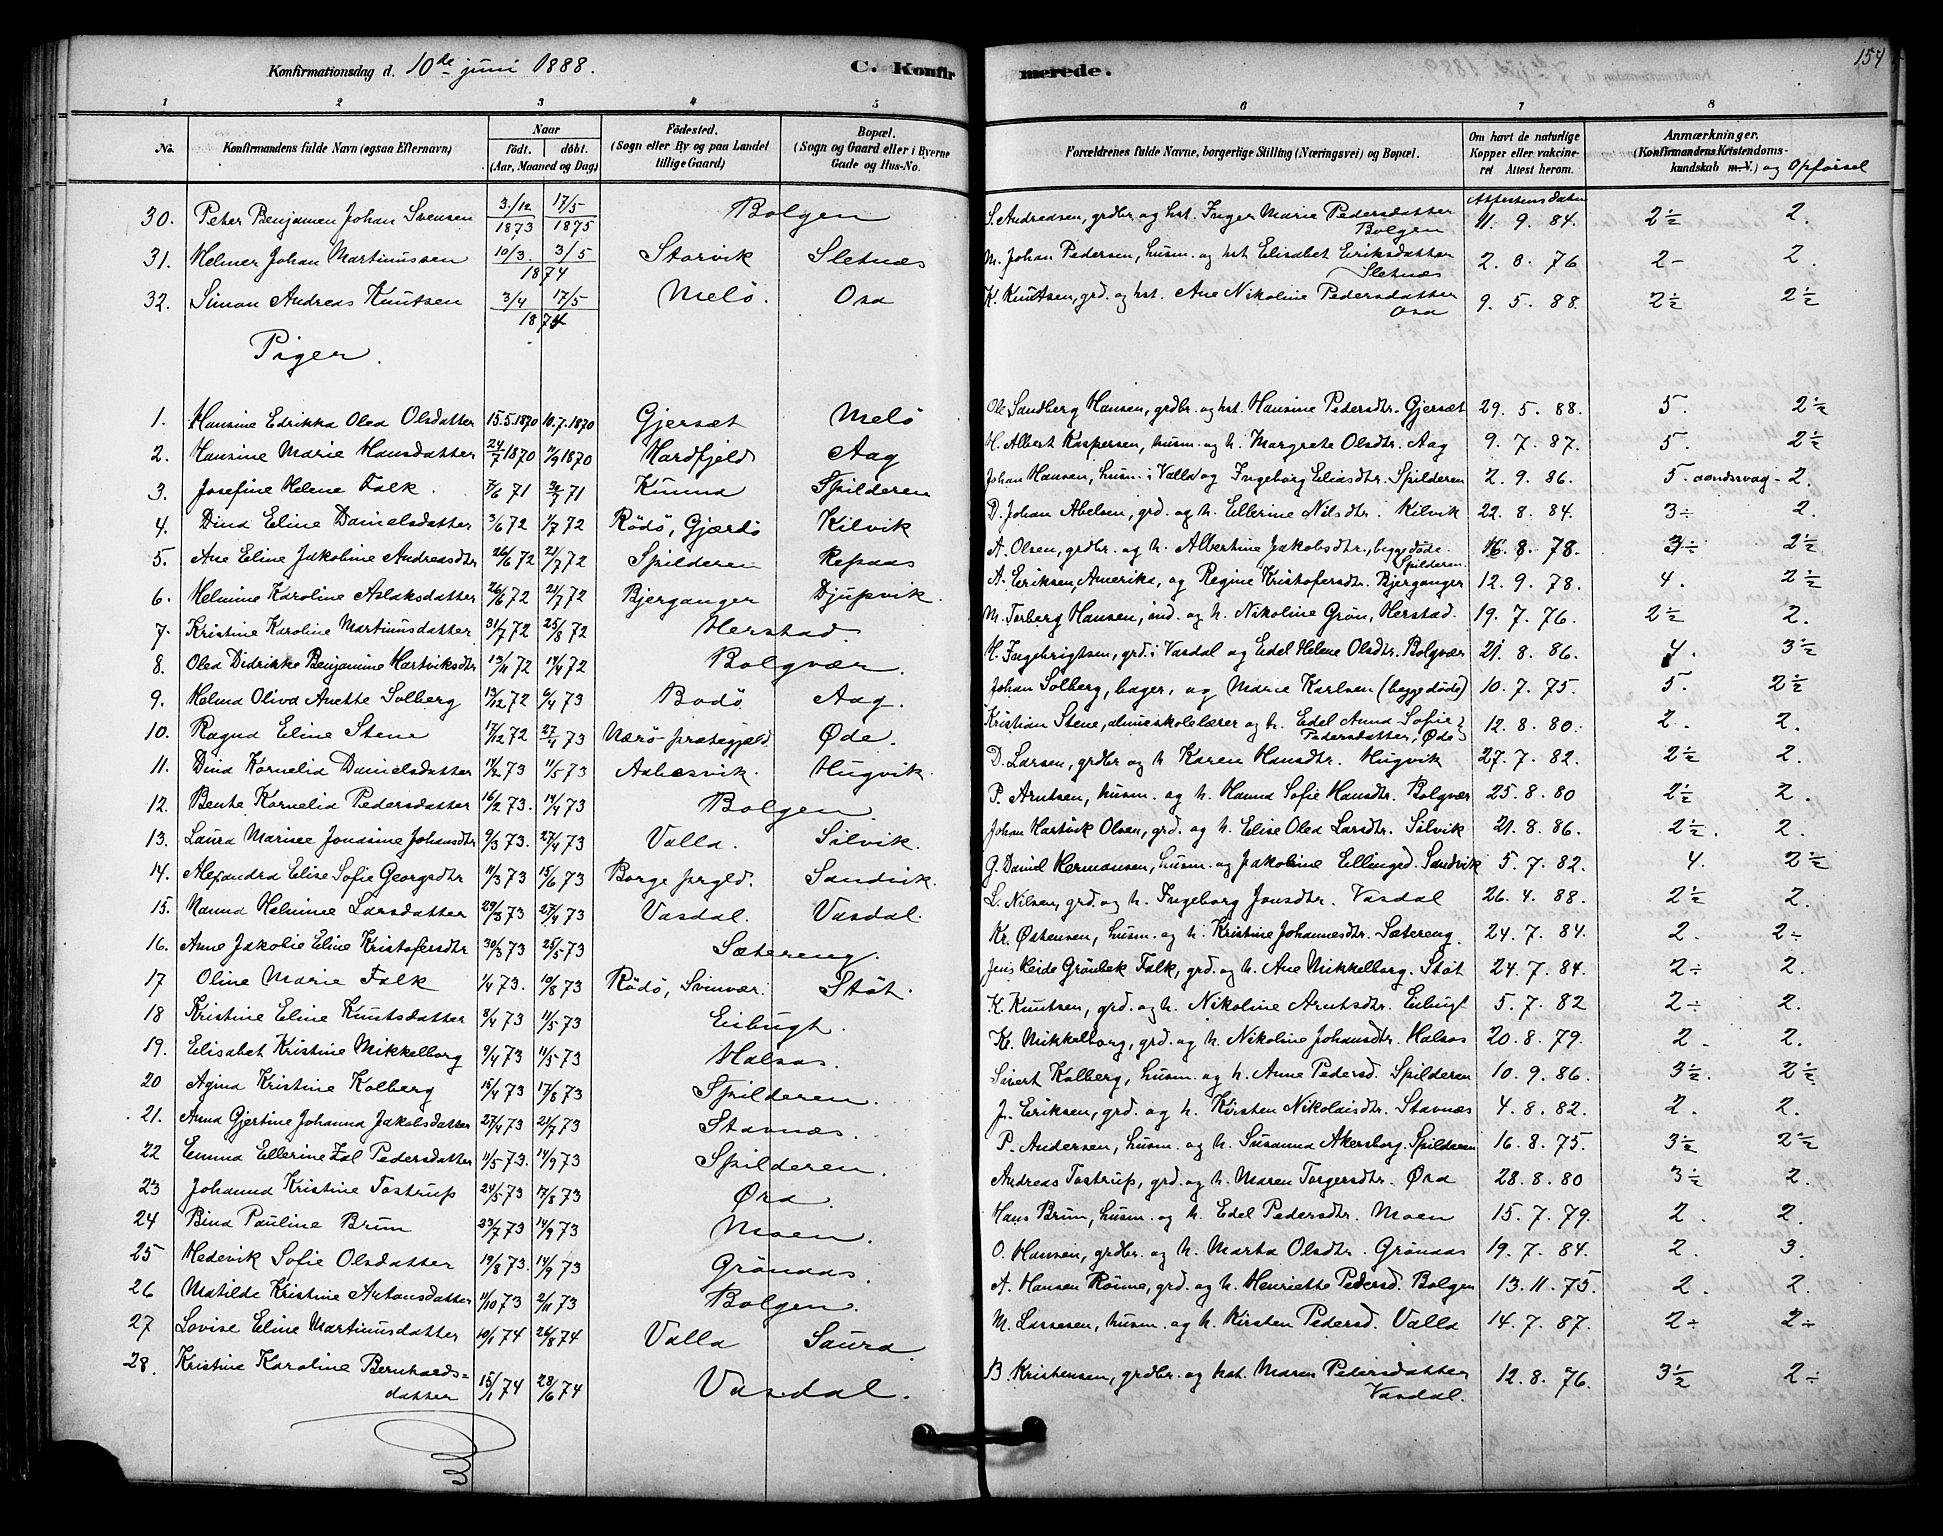 Konfirmationsdag d. 10de juni 1888. C. Konfirmerede. 154
1 2 3 4 5 6 7 8
No. Konfirmandens fulde Navn (ogsaa Efternavn) Naar født. døbt. (Aar, Maaned og Dag) Fødested. (Sogn eller By og paa Landet tillige Gaard) Bopæl. (Sogn og Gaard eller i Byerne Gade og Hus-No. Forældrenes fulde Navne, borgerlige Stilling (Næringsvei) og Bopæl. Om havt de naturlige Kopper eller vakcineret Attest herom. Anmærkninger. (Konfirmandens Kristendomskundskab m. V.) og Opførsel
Attestens dato
30. Peter Benjamen Johan Svensen 3/12 1873 17/5 1875 Bolgen S. Andreasen, grdbr. og hst. Inger Marie Pedersdatter Bolgen 11. 9. 84. 2½ 2.
31. Helmer Johan Martinussen 10/3. 3/5 1874 Storvik Sletnæs M. Johan Pedersen, husm. og hst. Elisabet Eriksdatter Sletnæs 2. 8. 76 2- 2.
32. Simon Andreas Knutsen 3/4 17/5 1874 Melö. Osa K. Knutsen, grd. og hst. Ane Nikoline Pedersdatter Osa 9. 5. 88. 2½ 2½
Piger.
1. Hansine Edrikka Olea Olsdatter 15.5.1870 10.7.1870 Gjersæt Melö Ole Sandberg Hansen, grdbr. og hst. Hansine Pedersdtr. Gjersæt 29. 5. 88. 5. 2½
2. Hansine Marie Hansdatter 24/7 1870 4/9 1870 Hardfjeld Aag H. Albert Kaspersen, husm. og h. Margrete Olsdtr. Aag 9. 7. 87. 5. 2½
3. Josefine Helene Falk. 7/6 71 30/7 71 Kunna Spilderen Johan Hansen, husm. i Valla og Ingeborg Eliasdtr. Spilderen 2. 9. 86. 5. aandssvag - 2.
4. Dina Eline Danielsdatter 3/6 72 1/7 72 Rödö, Gjærdö Kilvik D. Johan Abelsen, grd. og h. Ellerine Nilsdtr. Kilvik 22. 8. 84. 3÷ 2.
5. Ane Eline Jakobine Andreasdtr 26/6 72 21/7 72 Spilderen Repaas A. Olsen, grdbr. og h. Albertine Jakobsdtr., begge döde. Spilderen 16. 8. 78. 3÷ 2½
6. Helmine Karoline Aslaksdatter 26/6 72 21/7 72 Bjerganger Djupvik. A. Eriksen, Amerika, og Regine Kristofersdtr. Bjerganger 12. 9. 78. 4. 2½
7. Kristine Karoline Martinusdatter 31/7 72 25/8 72 Herstad. M. Torberg Hansen, ind. og h. Nikoline Grön, Herstad. 19. 7. 76. 2½ 2.
8. Olea Didrikke Benjamine Hartviksdtr 13/11 72 14/4 72 Bolgvær. H. Ingebrigtsen, grd. i Vasdal og Edel Helene Olsdtr. Bolgvær 21. 8. 86. 4. 3½
9. Helma Oliva Anette Solberg 13/12 72 6/4 73 Bodö Aag. Johan Solberg, bager, og Marie Karlsen (begge döde) 10. 7. 75. 5. 2½
10. Ragna Eline Stene 17/12 72 27/4 73 Nærö præstegjæld Øde. Kristian Stene, almueskolelærer og h. Edel Anna Sofie Pedersdatter, Øde 12. 8. 80. 2. 2.
11. Dina Kornelia Danielsdatter 11/2 73 11/5 73 Aahesvik. Hugvik. D. Larsen, grdbr og h Karen Hansdtr. Hugvik 27. 7. 82. 2½ 2.
12. Bente Kornelia Pedersdatter 16/2 73. 14/4 73 Bolgen. P. Arntsen, husm. og h. Hanna Sofie Hansdtr. Bolgvær 25. 8. 80 2½ 2.
13. Laura Marine Jonasine Johansdtr 9/3 73. 27/4 73 Valla. Silvik. Johan Hartvik Olsen, grd. og h. Elise Olea Larsdtr. Silvik 21. 8. 86. 2½. 2.
14. Alexandra Elise Sofie Georgsdtr 11/3 73 15/6 73 Borge prgld. Sandvik. G. Daniel Hermansen, husm. og Jakobine Ellingsd. Sandvik 5. 7. 82. 4. 2½
15. Nanna Helmine Larsdatter 29/3 73 27/4 73 Vasdal. Vasdal. L. Nilsen, grd. og h. Ingeborg Jonsdtr. Vasdal 26. 4. 88. 2½ 2.
16. Anne Jakobie Eline Kristofersdtr 30/3 73 25/5 73 Sætereng. Kr. Østensen, husm. og h. Kristine Johannesdtr. Sætereng. 24. 7. 84. 2. 2÷
17 Oline Marie Falk 1/4 73. 10/8 73 Rödö, Svinvær. Stöt. Jens Heide Grönbek Falk, grd. og h. Ane Mikkelborg. Stöt 24. 7. 84. 2÷ 2.
18 Kristine Eline Knutsdatter 8/4 73 11/5 73 Eibugt. K. Knutsen, grd. og h. Nikoline Arntsdtr. Eibugt 5. 7. 82 2÷ 2.
19. Elisabet Kristine Mikkelborg 9/4 73 11/5 73 Halsos. K. Mikkelborg, grd. og h. Nikoline Johansdtr. Halsos 20. 8. 79. 2. 2.
20 Agina Kristine Kolberg 15/4 73 17/8 73 Spilderen. Sivert Kolberg, husm. og h. Anne Pedersd. Spilderen 10. 9. 86. 3½. 2½
21. Anna Gjertine Johanna Jakobsdatter 27/4 73 21/7 73 Stavnæs. J. Eriksen, grd. og h. Kirsten Nikolaisdtr. Stavnæs 4. 8. 82. 2. 2.
22 Emma Ellerine Zal Pedersdatter 11/5 73. 14/9 73 Spilderen. P. Andersen, husm. og h. Susanna Akersborg. Spilderen 16. 8. 75. 3½ 2½
23 Johanna Kristine Tostrup 24/5 73 17/8 73 Øra. Andreas Tostrup, grd. og h. Maren Torgersdtr. Øra 28. 8. 80 3½ 2.
24 Bina Pauline Brun 23/7 73 14/9 73 Moen. Hans Brun, husm. og h. Edel Pedersdtr. Moen 15. 7. 79. 2. 2.
25 Hedevik Sofie Olsdatter 19/8 73. 14/9 73 Grönaas. O. Hansen, grdbr. og h. Marta Olsdtr. Grönaas 19. 7. 84. 2. 3.
26 Matilde Kristine Antonsdatter 11/10 73 2/11 73 Bolgen. A. Hansen Rönne, grd. og h. Henriette Pedersd. Bolgen 13. 11. 75. 2. 2.
27 Lovise Eline Martinusdatter 10/1 74 26/8 74 Valla Saura. M. Larsesen, husm. og h. Kirsten Pedersd. Valla 14. 7. 87. 2÷ 2÷
28. Kristine Karoline Bernhardsdatter 15/11 74 28/6 74 Vasdal. B. Kristensen, grdbr. og hst. Maren Pedersdatter Vasdal. 12. 8. 76. 3½ 2÷